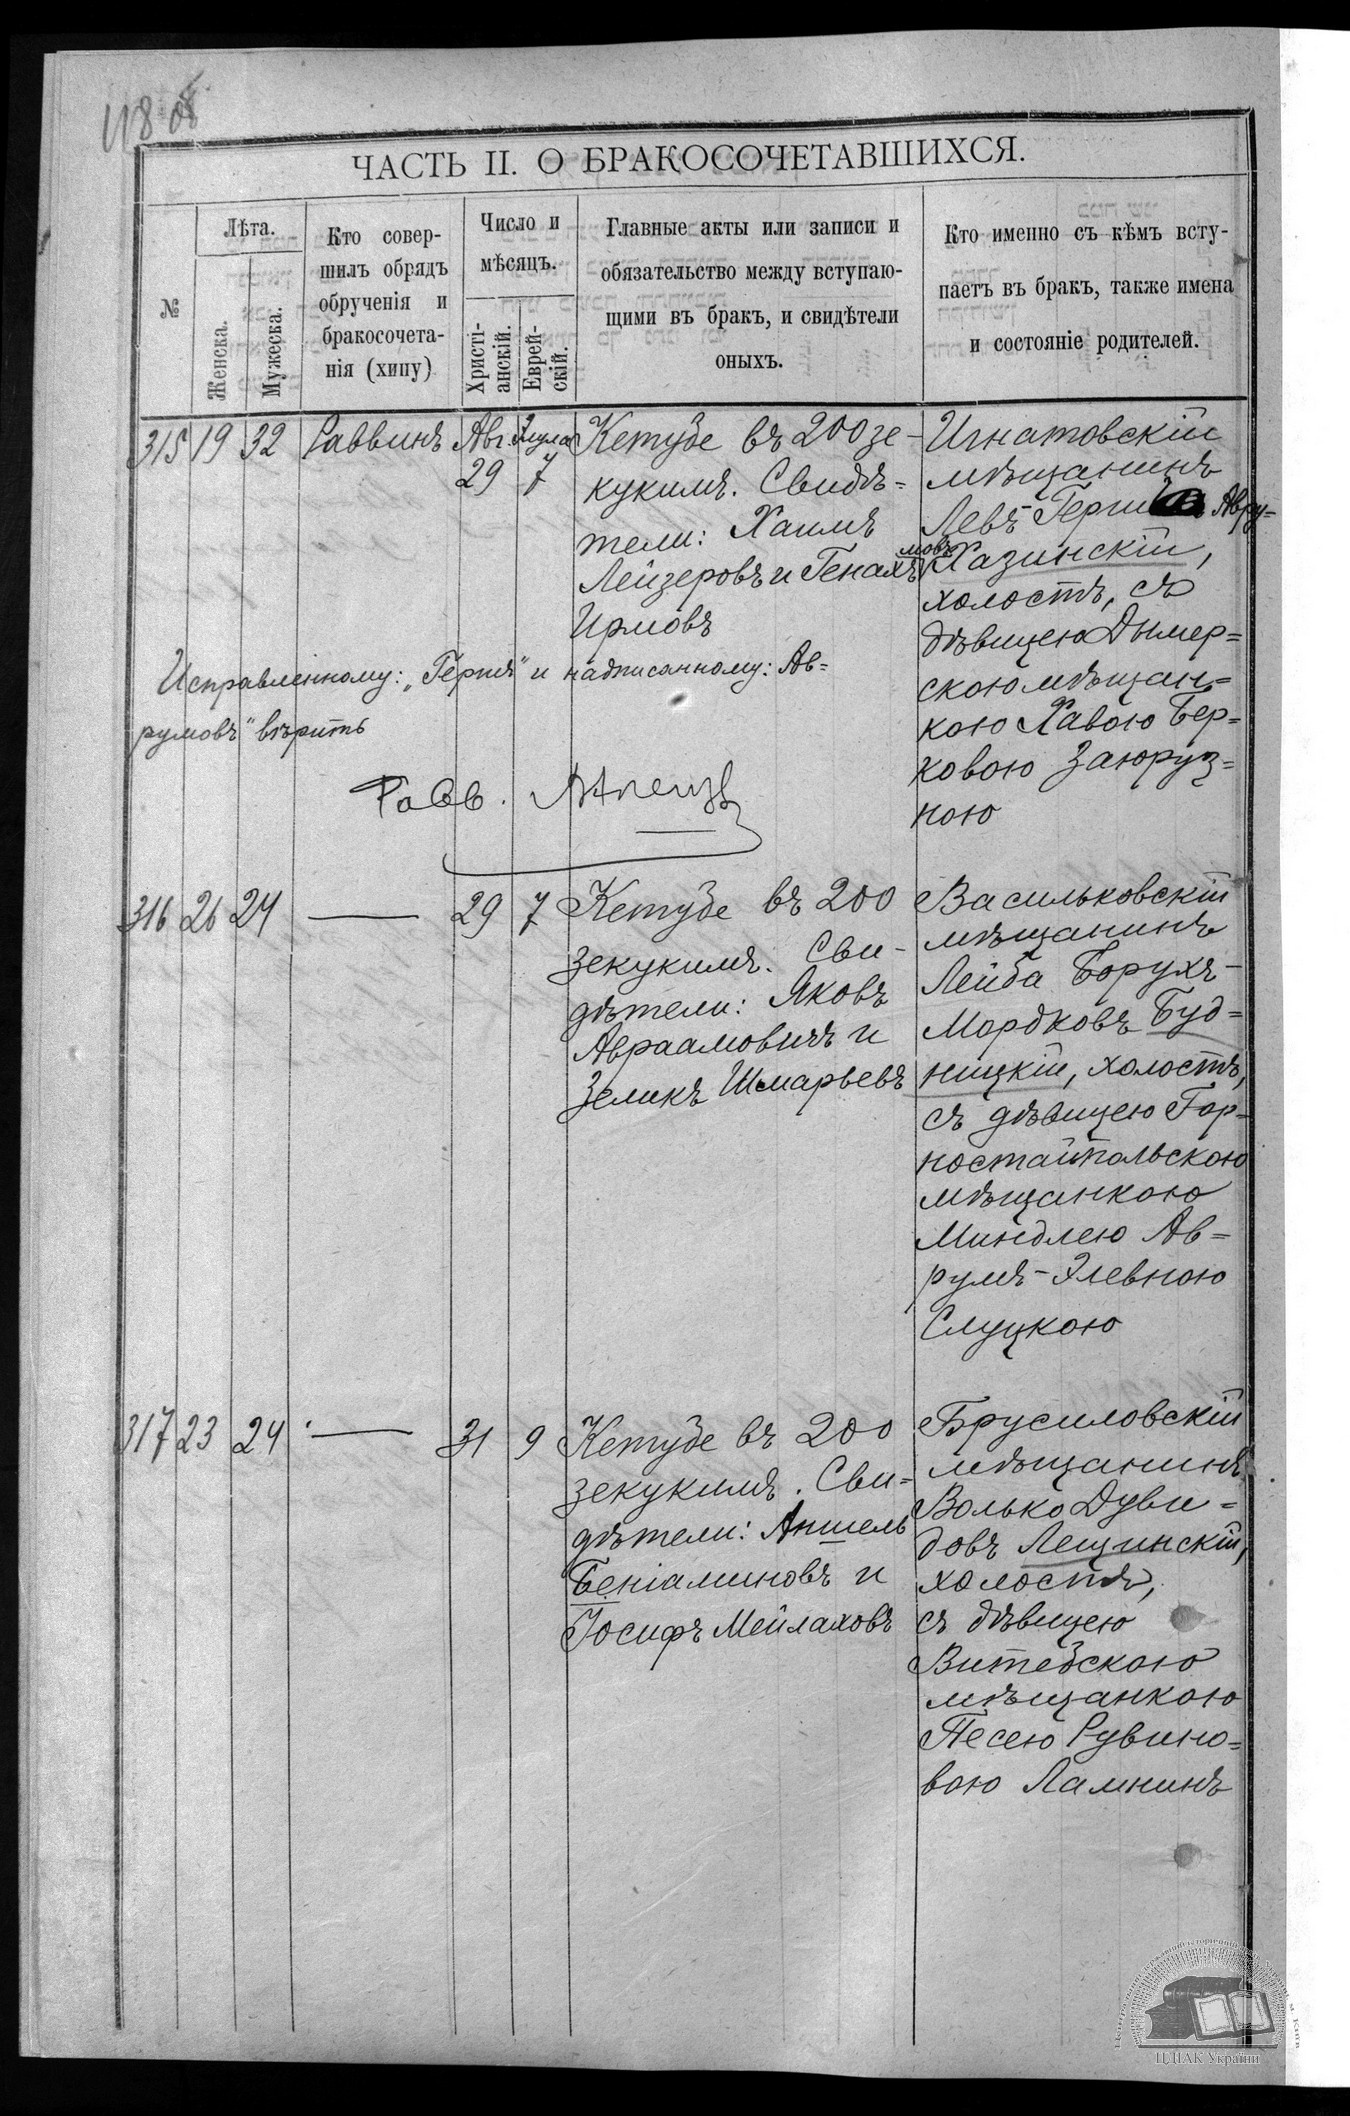 118 об
ЧАСТЬ II. О БРАКОСОЧЕТАВШИХСЯ.
№
Лѣта.
Женска.
Мужеска.
Кто совер-
шилъ обрядъ
обрученія и
бракосочета-
нія (хипу)
Число и
мѣсяцъ.
Христі-
анскій.
Еврей-
скій.
Главные акты или записи и
обязательство между вступаю-
щими въ бракъ, и свидѣтели
оныхъ.
Кто именно съ кѣмъ всту-
паетъ въ бракъ, также имена
и состояніе родителей.
315 19 32 Раввинъ Авг. 29 Элула 7
Кетубе въ 200 зе-
кукимъ. Свидѣ=
тели: Хаимъ
Лейзеровъ и Генахъ
Ирмовъ
Игнатовскій
мѣщанинъ
Левъ Герш Авру=
мовъ
Хазинскій,
холостъ, съ
дѣвицею Дымер=
скою мѣщан=
кою Хавою Бер=
ковою Заюруз=
ною
Исправленному: „Герш" и надписанному: Ав=
румовъ" вѣрить
Равв.
316 26 24 — 29 7
Кетубе въ 200
зекукимъ. Сви-
дѣтели: Яковъ
Авраамовичъ и
Зеликъ Шмарьевъ
Васильковскій
мѣщанинъ
Лейба Борухъ-
Мордковъ Буд=
ницкій, холостъ,
съ дѣвицею Гор-
ностайпольскою
мѣщанкою
Миндлею Ав=
румъ-Элевною
Слуцкою
317 23 24 — 31 9
Кетубе въ 200
зекукимъ. Сви=
дѣтели: Аншель
Беніаминовъ и
Іосифъ Мейлаховъ
Брусиловскій
мѣщанинъ
Волько Дуви=
довъ Лещинскій,
холостъ,
съ дѣвицею
Витебскою
мѣщанкою
Песею Рувино=
вою Ламнинъ
ЦДІАК України